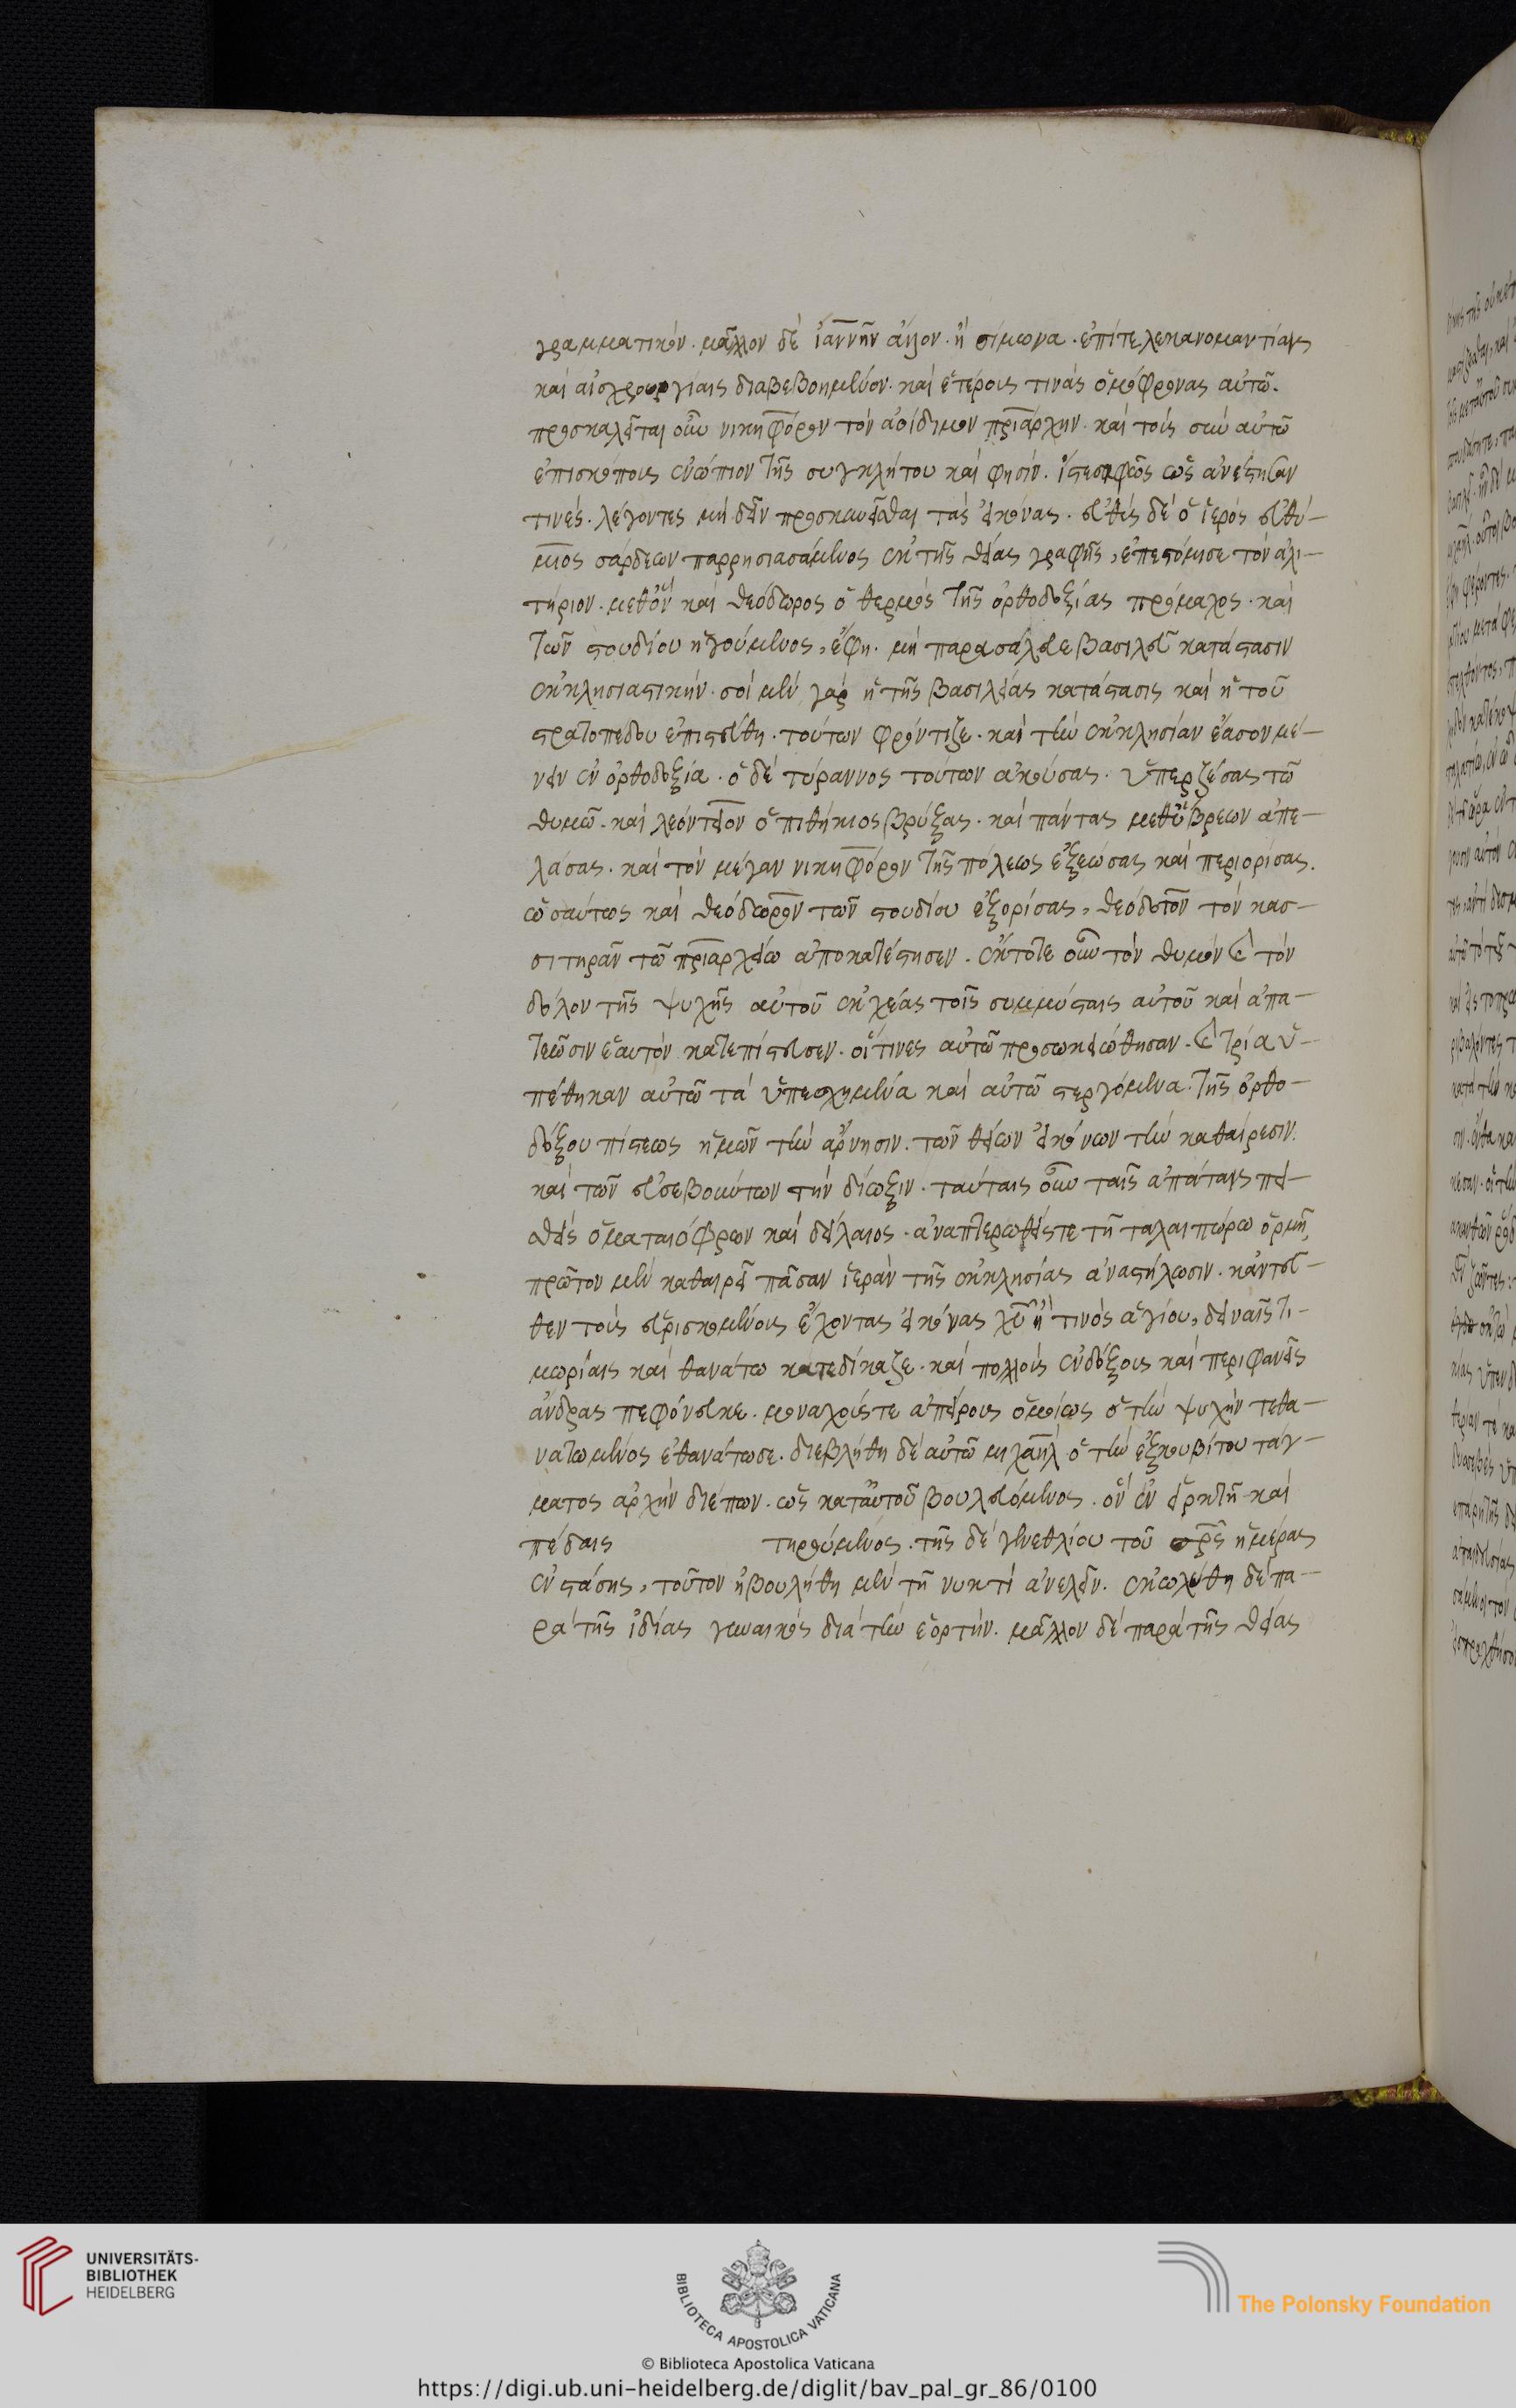 γραμματικόν· μᾶλλον δὲ ἰαννῆν ἄλλον· ἢ σίμωνα· ἐπί τε λεκανομαντίαις
καὶ αἰσχρουργίαις διαβεβοημένον· καὶ ἑτέρους τινὰς ὁμόφρονας αὐτῶ·
προσκαλεῖται οὖν νικηφόρον τὸν ἀοίδιμον πριάρχην· καὶ τοὺς σὺν αὐτῶ
ἐπισκόπους ἐνώπιον τῆς συγκλήτου καὶ φησίν· ἴστε σαφῶς ὡς ἀνέστησαν
τινές· λέγοντες μὴ δεῖν προσκυνεῖσθαι τὰς εἰκόνας· εὐθὺς δὲ ὁ ἱερὸς εὐθύ-
μιος σάρδεων παρρησιασάμενος ἐκ τῆς θείας γραφῆς, ἐπεστόμισε τὸν ἀλι-
τήριον· μεθ' ὃν καὶ θεόδωρος ὁ θερμὸς τῆς ὀρθοδοξίας πρόμαχος· καὶ
τῶν στουδίου ἡγούμενος, ἔφη· μὴ παρασάλευε βασιλεῦ κατάστασιν
ἐκκλησιαστικήν· σοὶ μὲν γὰρ ἡ τῆς βασιλείας κατάστασις καὶ ἡ τοῦ
στρατοπέδου ἐπιστεύθη· τούτων φρόντιζε· καὶ τὴν ἐκκλησίαν ἔασον μέ-
νειν ἐν ὀρθοδοξία· ὁ δὲ τύραννος τούτων ἀκούσας· ὑπερζέσας τῶ
θυμῶ· καὶ λεόντειον ὁ πιθήκιος βρύξας· καὶ πάντας μεθ' ὕβρεων ἀπε-
λάσας· καὶ τὸν μέγαν νικηφόρον τῆς πόλεως ἐξεώσας καὶ περιορίσας·
ὡσαύτως καὶ θεόδωρον τῶν στουδίου ἐξορίσας, θεόδοτον τὸν κασ-
σιτηρᾶν τῶ πριαρχείω ἀποκατέστησεν· ἔκτοτε οὖν τὸν θυμὸν καὶ τὸν
δόλον τῆς ψυχῆς αὐτοῦ ἐκχέας τοῖς συμμύσταις αὐτοῦ καὶ ἀπα-
τεῶσιν ἑαυτὸν κατεπίστευσεν· οἵτινες αὐτῶ προσωκειώθησαν· καὶ τρία ὑ-
πέθηκαν αὐτῶ τὰ ὑπεσχημένα καὶ αὐτῶ στεργόμενα· τῆς ὀρθο-
δόξου πίστεως ἡμῶν τὴν ἄρνησιν· τῶν θείων εἰκόνων τὴν καθαίρεσιν·
καὶ τῶν εὐσεβούντων τὴν δίωξιν· ταύταις οὖν ταῖς ἀπάταις πει-
σθεὶς ὁ ματαιόφρων καὶ δείλαιος· ἀναπτερωθείς τε τῆ ταλαιπώρω ὁρμῆ,
πρῶτον μὲν καθαιρεῖ πᾶσαν ἱερὰν τῆς ἐκκλησίας ἀναστήλωσιν· κἀντεῦ-
θεν τοὺς εὑρισκομένους ἔχοντας εἰκόνας χυ ἤ τινος ἁγίου, δειναῖς τι-
μωρίαις καὶ θανάτω κατεδίκαζε· καὶ πολλοὺς ἐνδόξους καὶ περιφανεῖς
ἄνδρας πεφόνευκε· μοναχούς τε ἀπείρους ὁμοίως ὁ τὴν ψυχὴν τεθα-
νατωμένος ἐθανάτωσε· διεβλήθη δὲ αὐτῶ μιχαὴλ ὁ τὴν ἐξκουβίτου τάγ-
ματος ἀρχὴν διέπων· ὡς κατ' αὐτοῦ βουλευόμενος· ὃς ἐν εἱρκτῆ καὶ
πέδαις τηρούμενος· τῆς δὲ γενεθλίου τοῦ σρς ἡμέρας
ἐνστάσης, τοῦτον ἠβουλήθη μὲν τῆ νυκτὶ ἀνελεῖν· ἐκωλύθη δὲ πα-
ρὰ τῆς ἰδίας γυναικὸς διὰ τὴν ἑορτήν· μᾶλλον δὲ παρὰ τῆς θείας
UNIVERSITÄTS-
BIBLIOTHEK
HEIDELBERG
BIBLIOTECA APOSTOLICA VATICANA
The Polonsky Foundation
© Biblioteca Apostolica Vaticana
https://digi.ub.uni-heidelberg.de/diglit/bav_pal_gr_86/0100